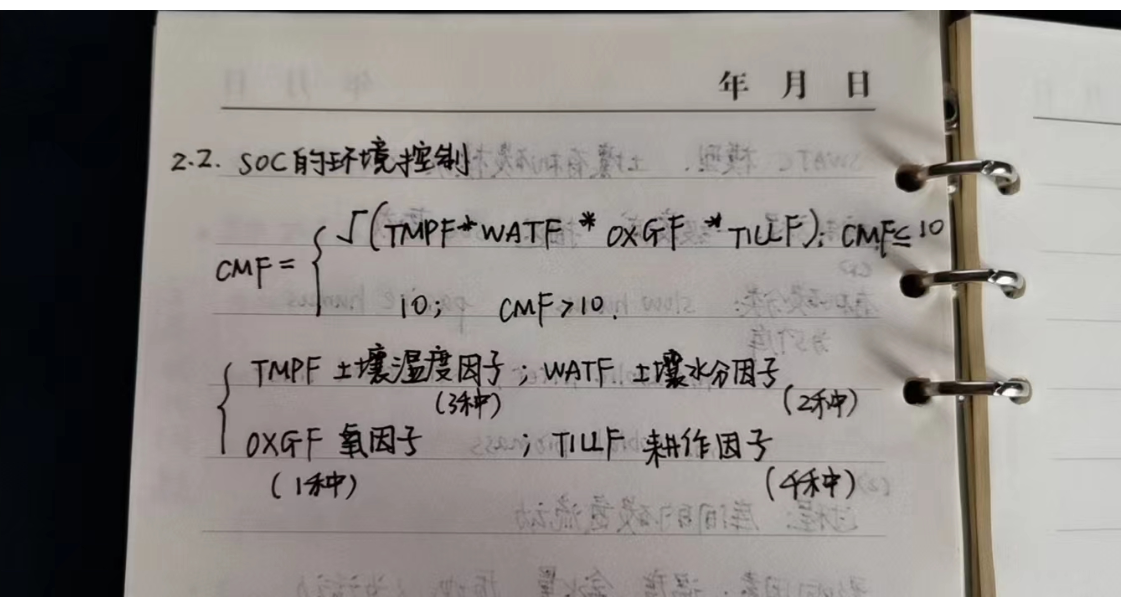 年 月 日
2.2. SOC的环境控制
CMF = { √(TMPF*WATF * OXGF *TILLF); CMF≤10
10; CMF>10.
{ TMPF 土壤温度因子; WATF 土壤水分因子
(3种) (2种)
OXGF 氧因子 ; TILLF 耕作因子
(1种) (4种)